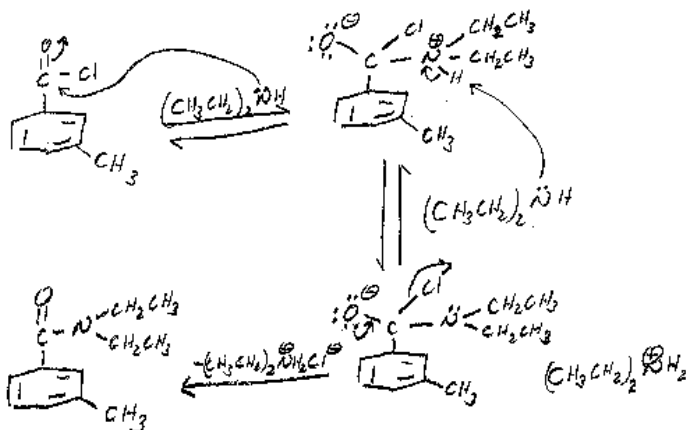 O
C - Cl
CH₃
(CH₃CH₂)₂N̈H
:Ö: ⊖
Cl
C - N⊕
CH₂CH₃
CH₂CH₃
H
CH₃
(CH₃CH₂)₂N̈H
O
C - N̈
CH₂CH₃
CH₂CH₃
CH₃
-(CH₃CH₂)₂N⊕H₂Cl⊖
:Ö: ⊖
Cl
C - N̈
CH₂CH₃
CH₂CH₃
CH₃
(CH₃CH₂)₂N⊕H₂